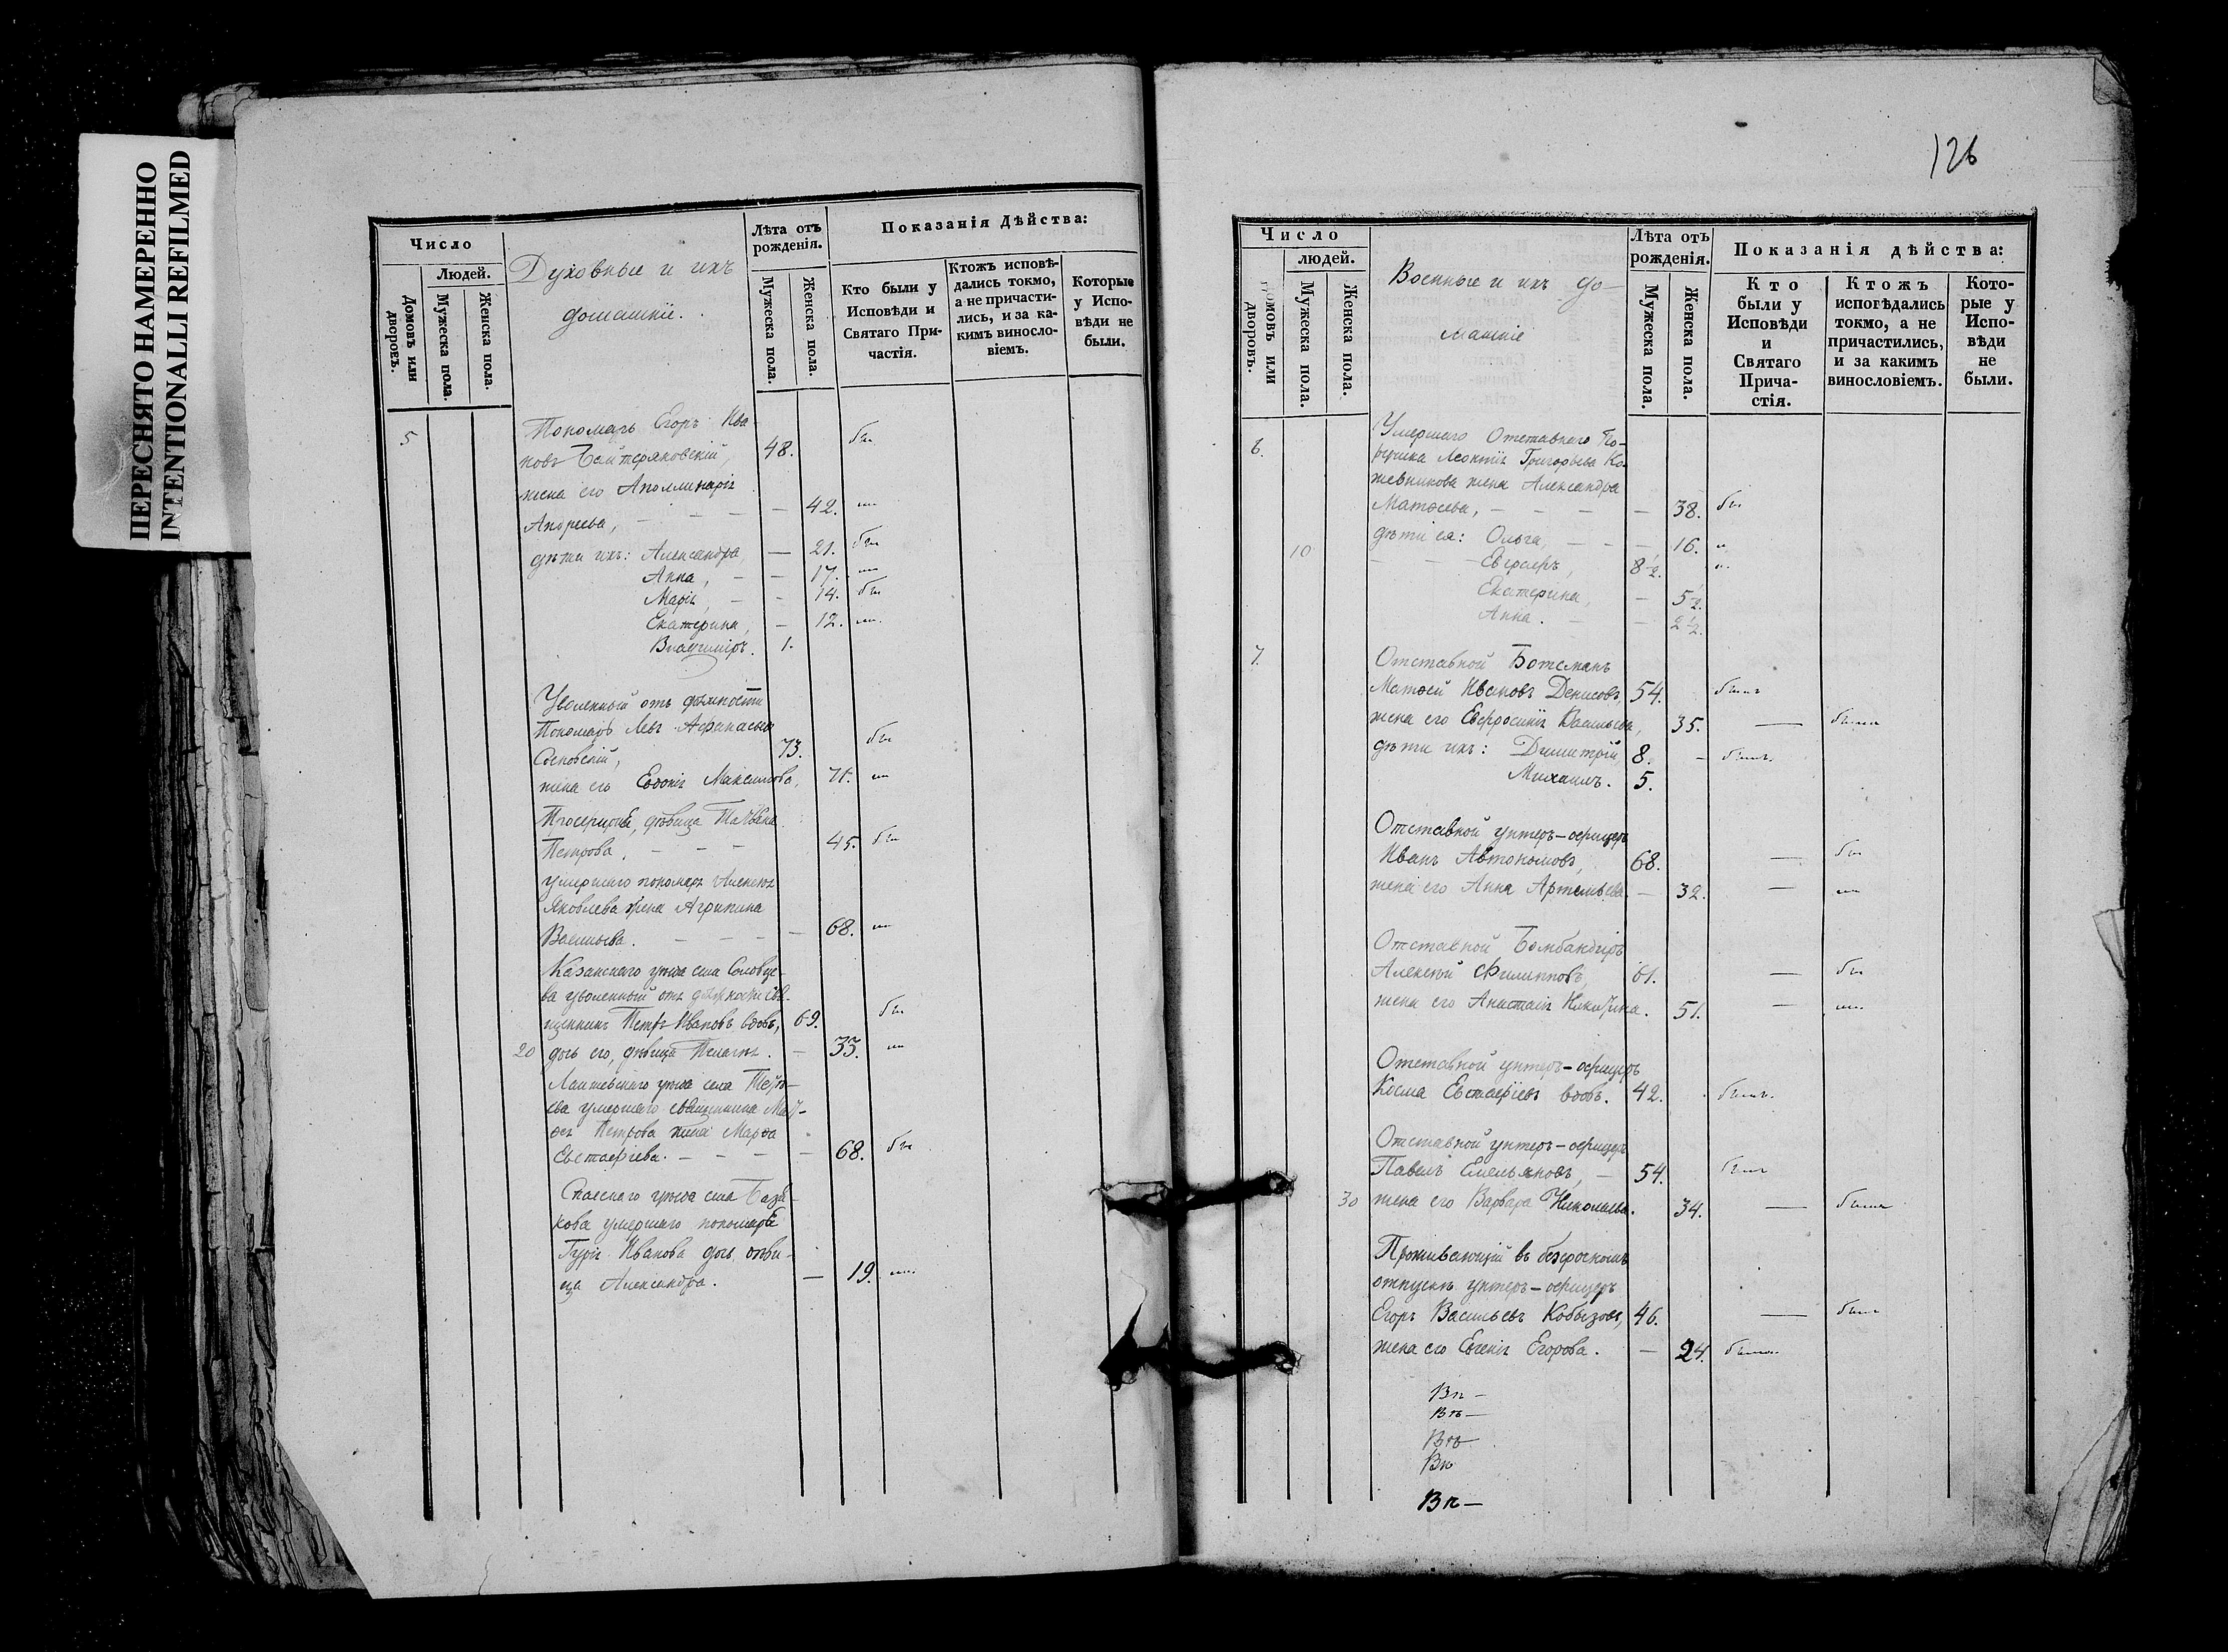 ПЕРЕСНЯТО НАМЕРЕННО
INTENTIONALLI REFILMED
Число
Людей.
Домовъ или дворовъ.
Мужеска пола.
Женска пола.
Духовные и ихъ
домашніе.
Лѣта отъ рожденія.
Мужеска пола.
Женска пола.
Показанія Дѣйства:
Кто были у Исповѣди и Святаго Причастія.
Ктожъ исповѣ-
дались токмо,
а не причасти-
лись, и за ка-
кимъ виносло-
віемъ.
Которые
у Испо-
вѣди не
были.
5 Пономарь Егоръ Ива-
новъ Байтеряковскій, 48. бы
жена его Аполлинарія
Андреева, — — — — 42. —
дѣти ихъ: Александра, — 21. бы
Анна, — — 17. —
Марія, — — 14. бы
Екатерина, — 12. —
Владиміръ. 1.
Уволенный отъ должности
Пономарь Левъ Афанасьевъ
73. бы
жена его Евдокія Максимова, 71. —
дѣвица
Петрова. — — — 45. бы
умершаго пономаря Алексѣя
Яковлева жена Агрипина
Васильева. — — — — 68. —
Казанскаго уѣзда села
ва уволенный отъ должности свя-
щенникъ Петръ Ивановъ вдовъ, 69. бы
20 дочь его, дѣвица Пелагея. — 33. —
Лаишевскаго уѣзда села
ева умершаго священника Мат-
ѳея Петрова жена Марѳа
Евстафіева. — — — — 68. бы
Спасскаго уѣзда села
кова умершаго пономаря
Гурія Иванова дочь дѣви-
ца Александра. — 19. —
126
Число
людей.
домовъ или дворовъ.
Мужеска пола.
Женска пола.
Военные и ихъ до-
машніе
Лѣта отъ рожденія.
Мужеска пола.
Женска пола.
Показанія дѣйства:
Кто
были у
Исповѣди
и
Святаго
Прича-
стія.
Ктожъ
исповѣдались
токмо, а не
причастились,
и за какимъ
винословіемъ.
Кото-
рые у
Испо-
вѣди
не
были.
6. Умершаго Отставнаго По-
ручика Леонтія Григорьева Ко-
жевникова жена Александра
Матѳеева, — — — — — 38. бы
дѣти ея: Ольга, — — — 16. "
10 — — — Евграфъ, 8 1/2. "
Екатерина, — 5 1/2.
Анна. — — 2 1/2.
7. Отставной Ботсманъ
Матѳей Ивановъ Денисовъ, 54. былъ
жена его Евфросинія Васильева, 35. — была
дѣти ихъ: Димитрій, 8. — былъ.
Михаилъ. 5.
Отставной унтеръ-офицеръ
Иванъ Автономовъ, 68. — бы
жена его Анна Артемьева. — 32. — —
Отставной Бомбандиръ
Алексѣй Филипповъ, 61. — бы
жена его Анастасія Никитина. 51. — —
Отставной унтеръ-офицеръ
Косма Евстафіевъ вдовъ. 42. былъ.
Отставной унтеръ-офицеръ
Павелъ Емельяновъ, — 54. былъ
30 жена его Варвара Николаева. 34. — была
Проживающій въ безсрочномъ
отпускѣ унтеръ-офицеръ
Егоръ Васильевъ Кобызовъ, 46. — былъ
жена его Евгенія Егорова. — 24. была.
Вп —
Въ —
Въ
Вп
Вп —